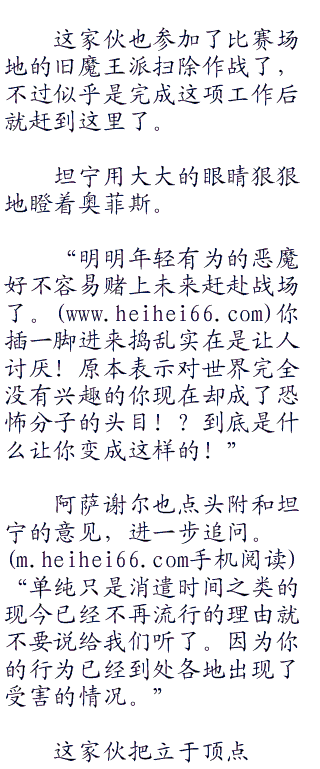 这家伙也参加了比赛场
地的旧魔王派扫除作战了，
不过似乎是完成这项工作后
就赶到这里了。
坦宁用大大的眼睛狠狠
地瞪着奥菲斯。
“明明年轻有为的恶魔
好不容易赌上未来赶赴战场
了。(www.heihei66.com)你
插一脚进来捣乱实在是让人
讨厌！原本表示对世界完全
没有兴趣的你现在却成了恐
怖分子的头目！？到底是什
么让你变成这样的！”
阿萨谢尔也点头附和坦
宁的意见，进一步追问。
(m.heihei66.com手机阅读)
“单纯只是消遣时间之类的
现今已经不再流行的理由就
不要说给我们听了。因为你
的行为已经到处各地出现了
受害的情况。”
这家伙把立于顶点